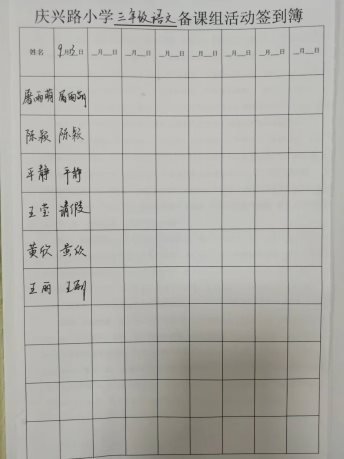 庆兴路小学三年级语文备课组活动签到簿
姓名 9月3日 __月__日 __月__日 __月__日 __月__日 __月__日 __月__日 __月__日
屠雨萌 屠雨萌
陈颖 陈颖
平静 平静
王莹 请假
黄欣 黄欣
王丽 王丽